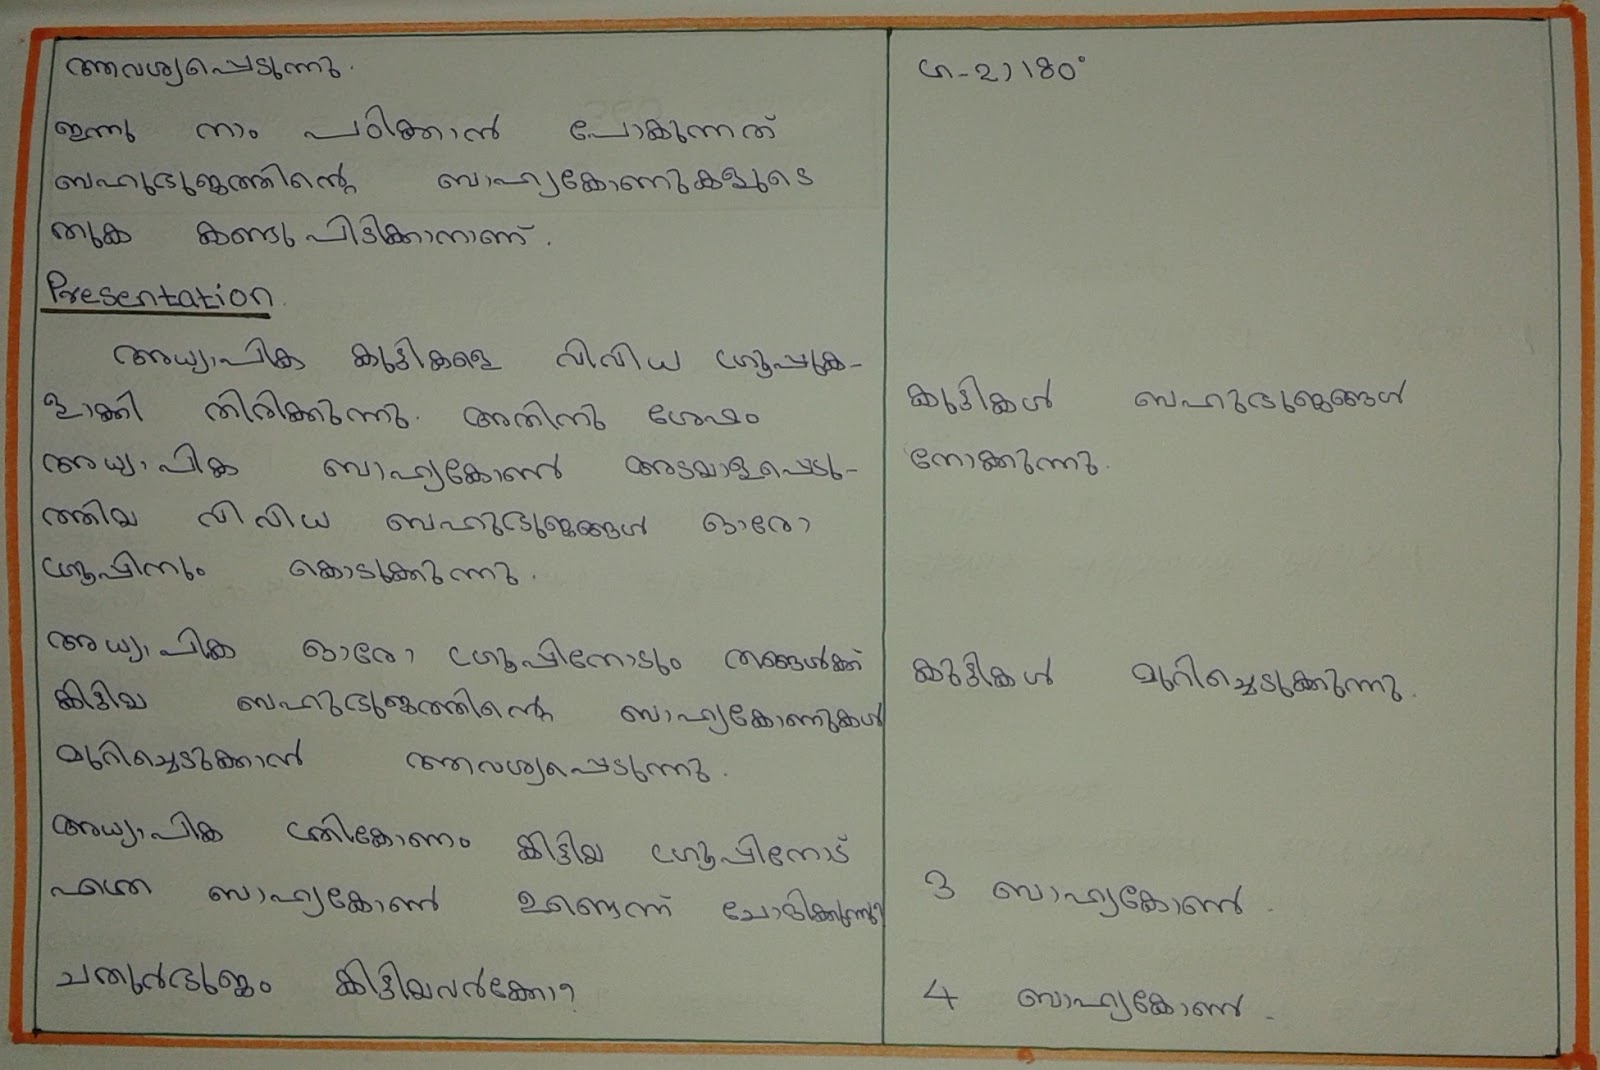 ആവശ്യപ്പെടുന്നു.
ഇന്നു നാം പഠിക്കാൻ പോകുന്നത്
ബഹുഭുജത്തിന്റെ ബാഹ്യകോണുകളുടെ
തുക കണ്ടുപിടിക്കാനാണ്.
Presentation
അധ്യാപിക കുട്ടികളെ വിവിധ ഗ്രൂപ്പുക-
ളാക്കി തിരിക്കുന്നു. അതിനു ശേഷം
അധ്യാപിക ബാഹ്യകോൺ അടയാളപ്പെടു-
ത്തിയ വിവിധ ബഹുഭുജങ്ങൾ ഓരോ
ഗ്രൂപ്പിനും കൊടുക്കുന്നു.
അധ്യാപിക ഓരോ ഗ്രൂപ്പിനോടും തങ്ങൾക്ക്
കിട്ടിയ ബഹുഭുജത്തിന്റെ ബാഹ്യകോണുകൾ
മുറിച്ചെടുക്കാൻ ആവശ്യപ്പെടുന്നു.
അധ്യാപിക ത്രികോണം കിട്ടിയ ഗ്രൂപ്പിനോട്
എത്ര ബാഹ്യകോൺ ഉണ്ടെന്ന് ചോദിക്കുന്നു?
ചതുർഭുജം കിട്ടിയവർക്കോ?
(n-2)180°
കുട്ടികൾ ബഹുഭുജങ്ങൾ
നോക്കുന്നു.
കുട്ടികൾ മുറിച്ചെടുക്കുന്നു.
3 ബാഹ്യകോൺ.
4 ബാഹ്യകോൺ.